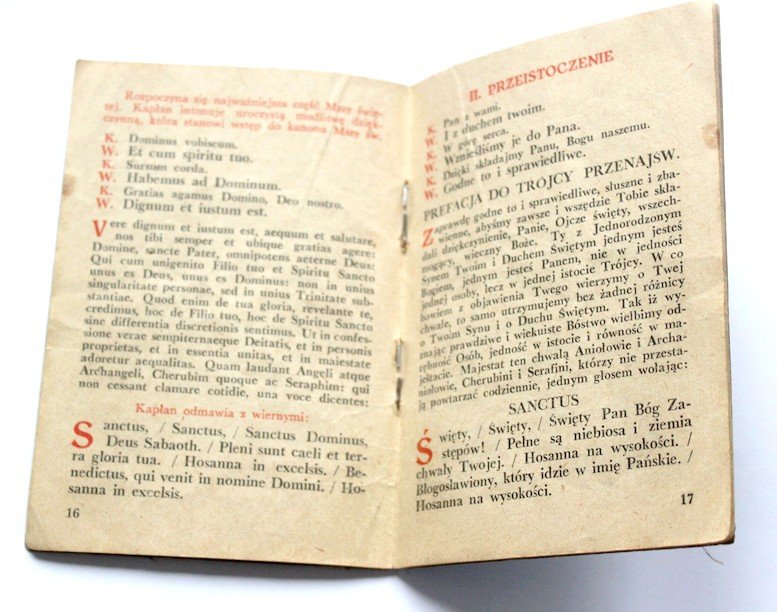 Rozpoczyna się najważniejsza część Mszy świę-
tej. Kapłan intonuje uroczystą modlitwę dzięk-
czynną, która stanowi wstęp do kanonu Mszy św.
K. Dominus vobiscum.
W. Et cum spiritu tuo.
K. Sursum corda.
W. Habemus ad Dominum.
K. Gratias agamus Domino, Deo nostro.
W. Dignum et iustum est.
Vere dignum et iustum est, aequum et salutare,
nos tibi semper et ubique gratias agere:
Domine, sancte Pater, omnipotens aeterne Deus:
Qui cum unigenito Filio tuo et Spiritu Sancto
unus es Deus, unus es Dominus: non in unius
singularitate personae, sed in unius Trinitate sub-
stantiae. Quod enim de tua gloria, revelante te,
credimus, hoc de Filio tuo, hoc de Spiritu Sancto
sine differentia discretionis sentimus. Ut in confes-
sione verae sempiternaeque Deitatis, et in personis
proprietas, et in essentia unitas, et in maiestate
adoretur aequalitas. Quam laudant Angeli atque
Archangeli, Cherubim quoque ac Seraphim: qui
non cessant clamare cotidie, una voce dicentes:
Kapłan odmawia z wiernymi:
Sanctus, / Sanctus, / Sanctus Dominus,
Deus Sabaoth. / Pleni sunt caeli et ter-
ra gloria tua. / Hosanna in excelsis. / Be-
nedictus, qui venit in nomine Domini. / Ho-
sanna in excelsis.
16
II. PRZEISTOCZENIE
K. Pan z wami.
W. I z duchem twoim.
K. W górę serca.
W. Wznieśliśmy je do Pana.
K. Dzięki składajmy Panu, Bogu naszemu.
W. Godne to i sprawiedliwe.
PREFACJA DO TRÓJCY PRZENAJŚW.
Zaprawdę godne to i sprawiedliwe, słuszne i zba-
wienne, abyśmy zawsze i wszędzie Tobie skła-
dali dziękczynienie, Panie, Ojcze święty, wszech-
mogący, wieczny Boże. Ty z Jednorodzonym
Synem Twoim i Duchem Świętym jednym jesteś
Bogiem, jednym jesteś Panem, nie w jedności
jednej osoby, lecz w jednej istocie Trójcy. W co
bowiem z objawienia Twego wierzymy o Twej
chwale, to samo utrzymujemy bez żadnej różnicy
o Twoim Synu i o Duchu Świętym. Tak iż wy-
znając prawdziwe i wiekuiste Bóstwo wielbimy od-
rębność Osób, jedność w istocie i równość w ma-
jestacie. Majestat ten chwalą Aniołowie i Archa-
niołowie, Cherubini i Serafini, którzy nie przesta-
ją powtarzać codziennie, jednym głosem wołając:
SANCTUS
Święty, / Święty, / Święty Pan Bóg Za-
stępów! / Pełne są niebiosa i ziemia
chwały Twojej. / Hosanna na wysokości. /
Błogosławiony, który idzie w imię Pańskie. /
Hosanna na wysokości.
17